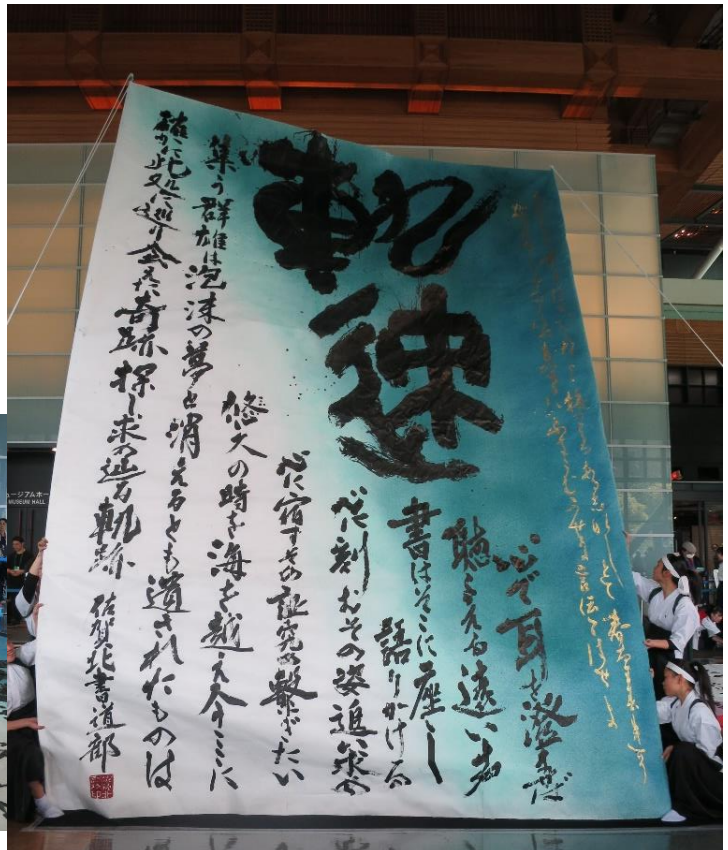 軌迹
心で耳を澄ませば
聴こえる遠い声
書はそこに座し
語りかける
心に刻むその姿追い求め
心に宿すその証究め繋ぎたい
悠久の時を海を越え今ここに
集う群雄は泡沫の夢と消えるとも遺されたものは
確かに此処に巡り会えた奇跡 探し求め辿る軌跡 佐賀北書道部
ュージアムホー
MUSEUM HALL